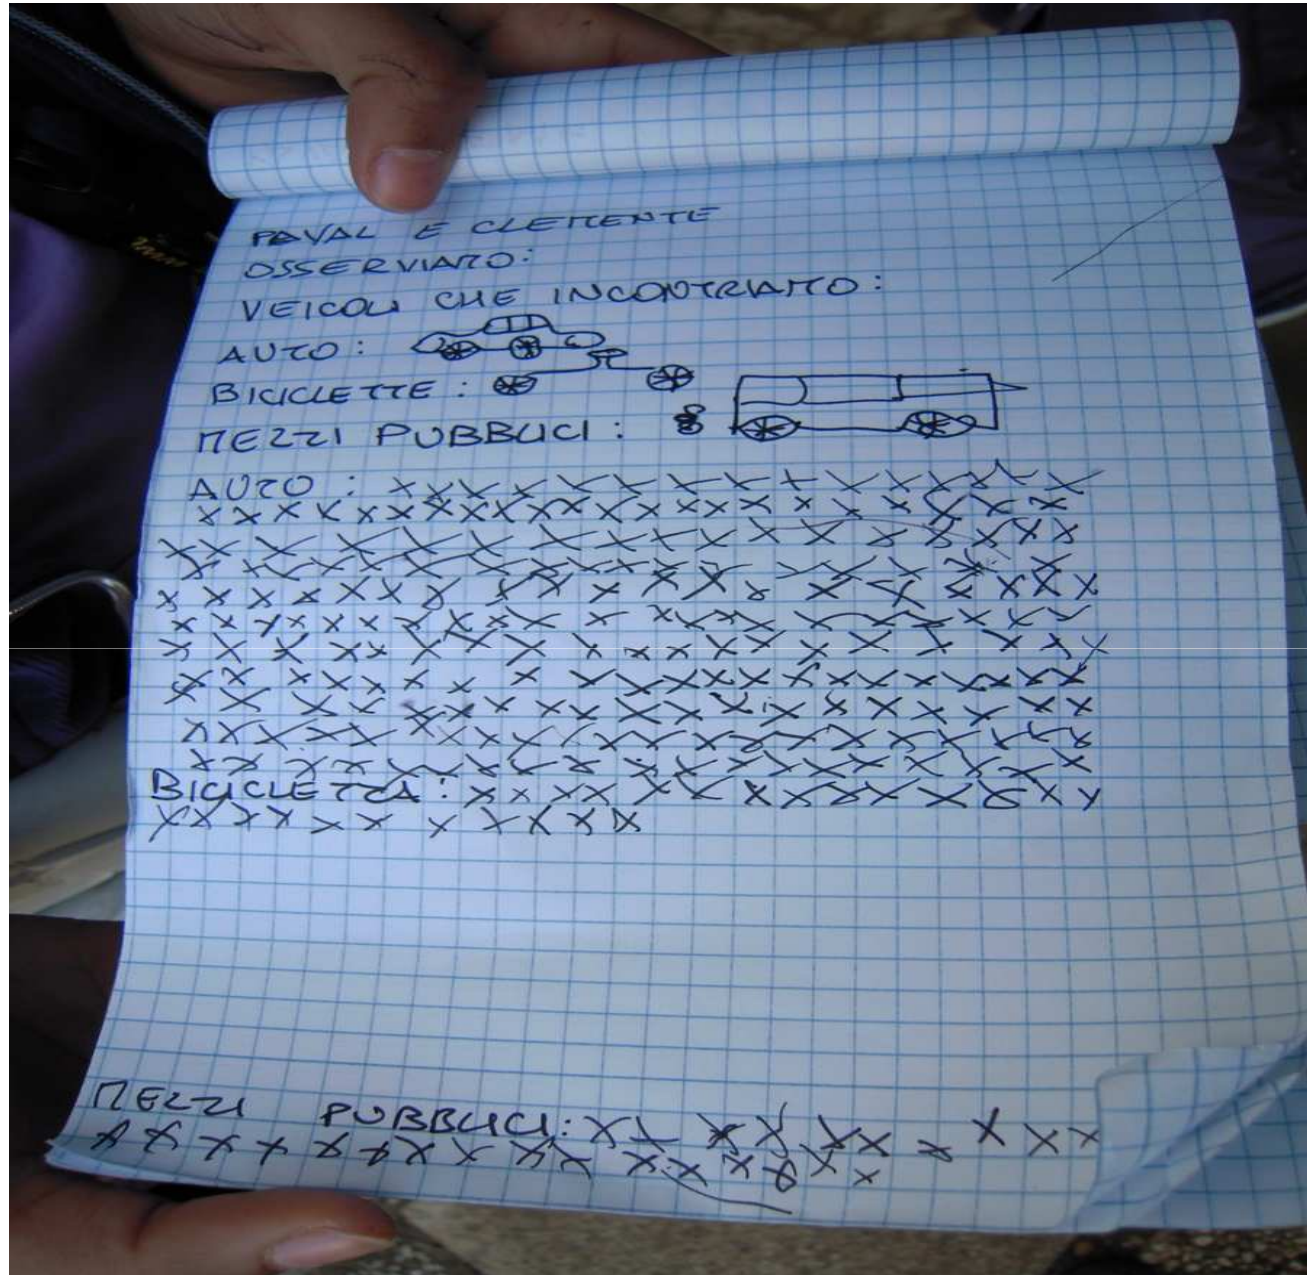 PAVAL E CLEMENTE
OSSERVIAMO:
VEICOLI CHE INCONTRIAMO:
AUTO:
BICICLETTE:
MEZZI PUBBLICI:
AUTO: x x x x x x x x x x x x x x x
x x x x x x x x x x x x x x x x x x x x x x
x x x x x x x x x x x x x x x x x
x x x x x x x x x x x x x x x x x
x x x x x x x x x x x x x x x x x x x
x x x x x x x x x x x x x x x x x x x x
x x x x x x x x x x x x x x x x x x x
x x x x x x x x x x x x x x x x x x x
x x x x x x x x x x x x x x x x x x
x x x x x x x x x x x x x x x x x x x x
x x x x x x x x x x x x x x x x x x
BICICLETTA: x x x x x x x x x x x x x x
x x x x x x x x x x x
MEZZI PUBBLICI: x x x x x x x x x x
x x x x x x x x x x x x x x x x x